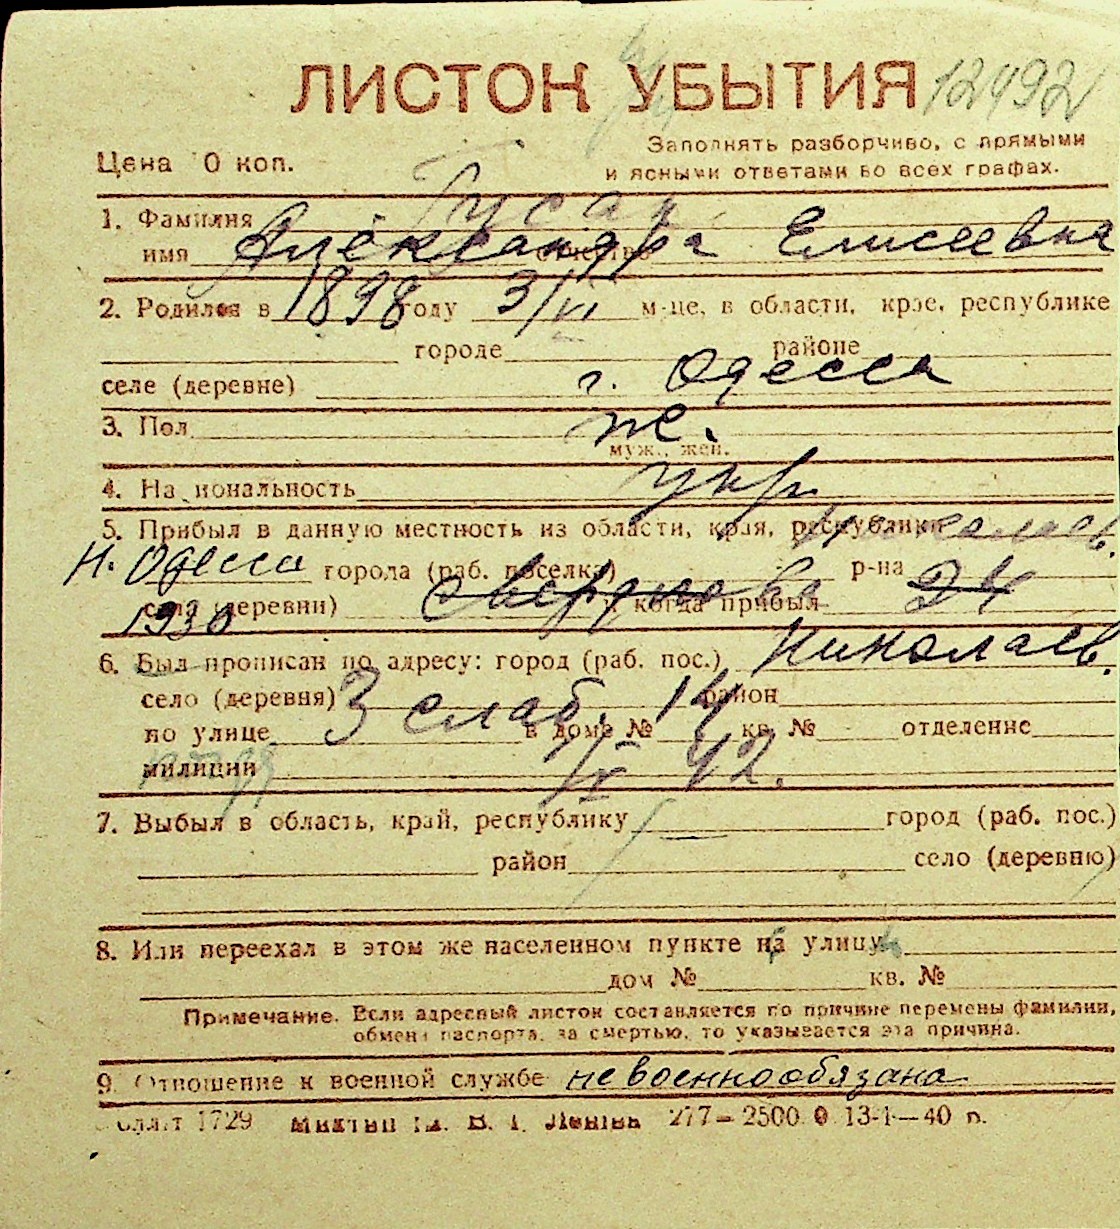 ЛИСТОК УБЫТИЯ 12492
Цена 0 коп.
Заполнять разборчиво, с прямыми
и ясными ответами во всех графах.
1. Фамилия
имя Александра Елисеевна
2. Родился в 1898 году 3/VI м-це, в области, крае, республике
городе районе
селе (деревне) г. Одесса
3. Пол ж.
муж., жен.
4. Национальность укр.
5. Прибыл в данную местность из области, края, республики Николаев.
Н. Одесса города (раб. поселка) р-на
села (деревни) Свердлова когда прибыл 24
1930
6. Был прописан по адресу: город (раб. пос.) Николаев.
село (деревня) район
по улице 3 слаб. 14 в доме № кв. № отделение
милиции IV 42.
7. Выбыл в область, край, республику город (раб. пос.)
район село (деревню)
8. Или переехал в этом же населенном пункте на улицу
дом № кв. №
Примечание. Если адресный листок составляется по причине перемены фамилии,
обмена паспорта, за смертью, то указывается эта причина.
9. Отношение к военной службе невоеннообязана
1729 277—2500 13-1—40 р.